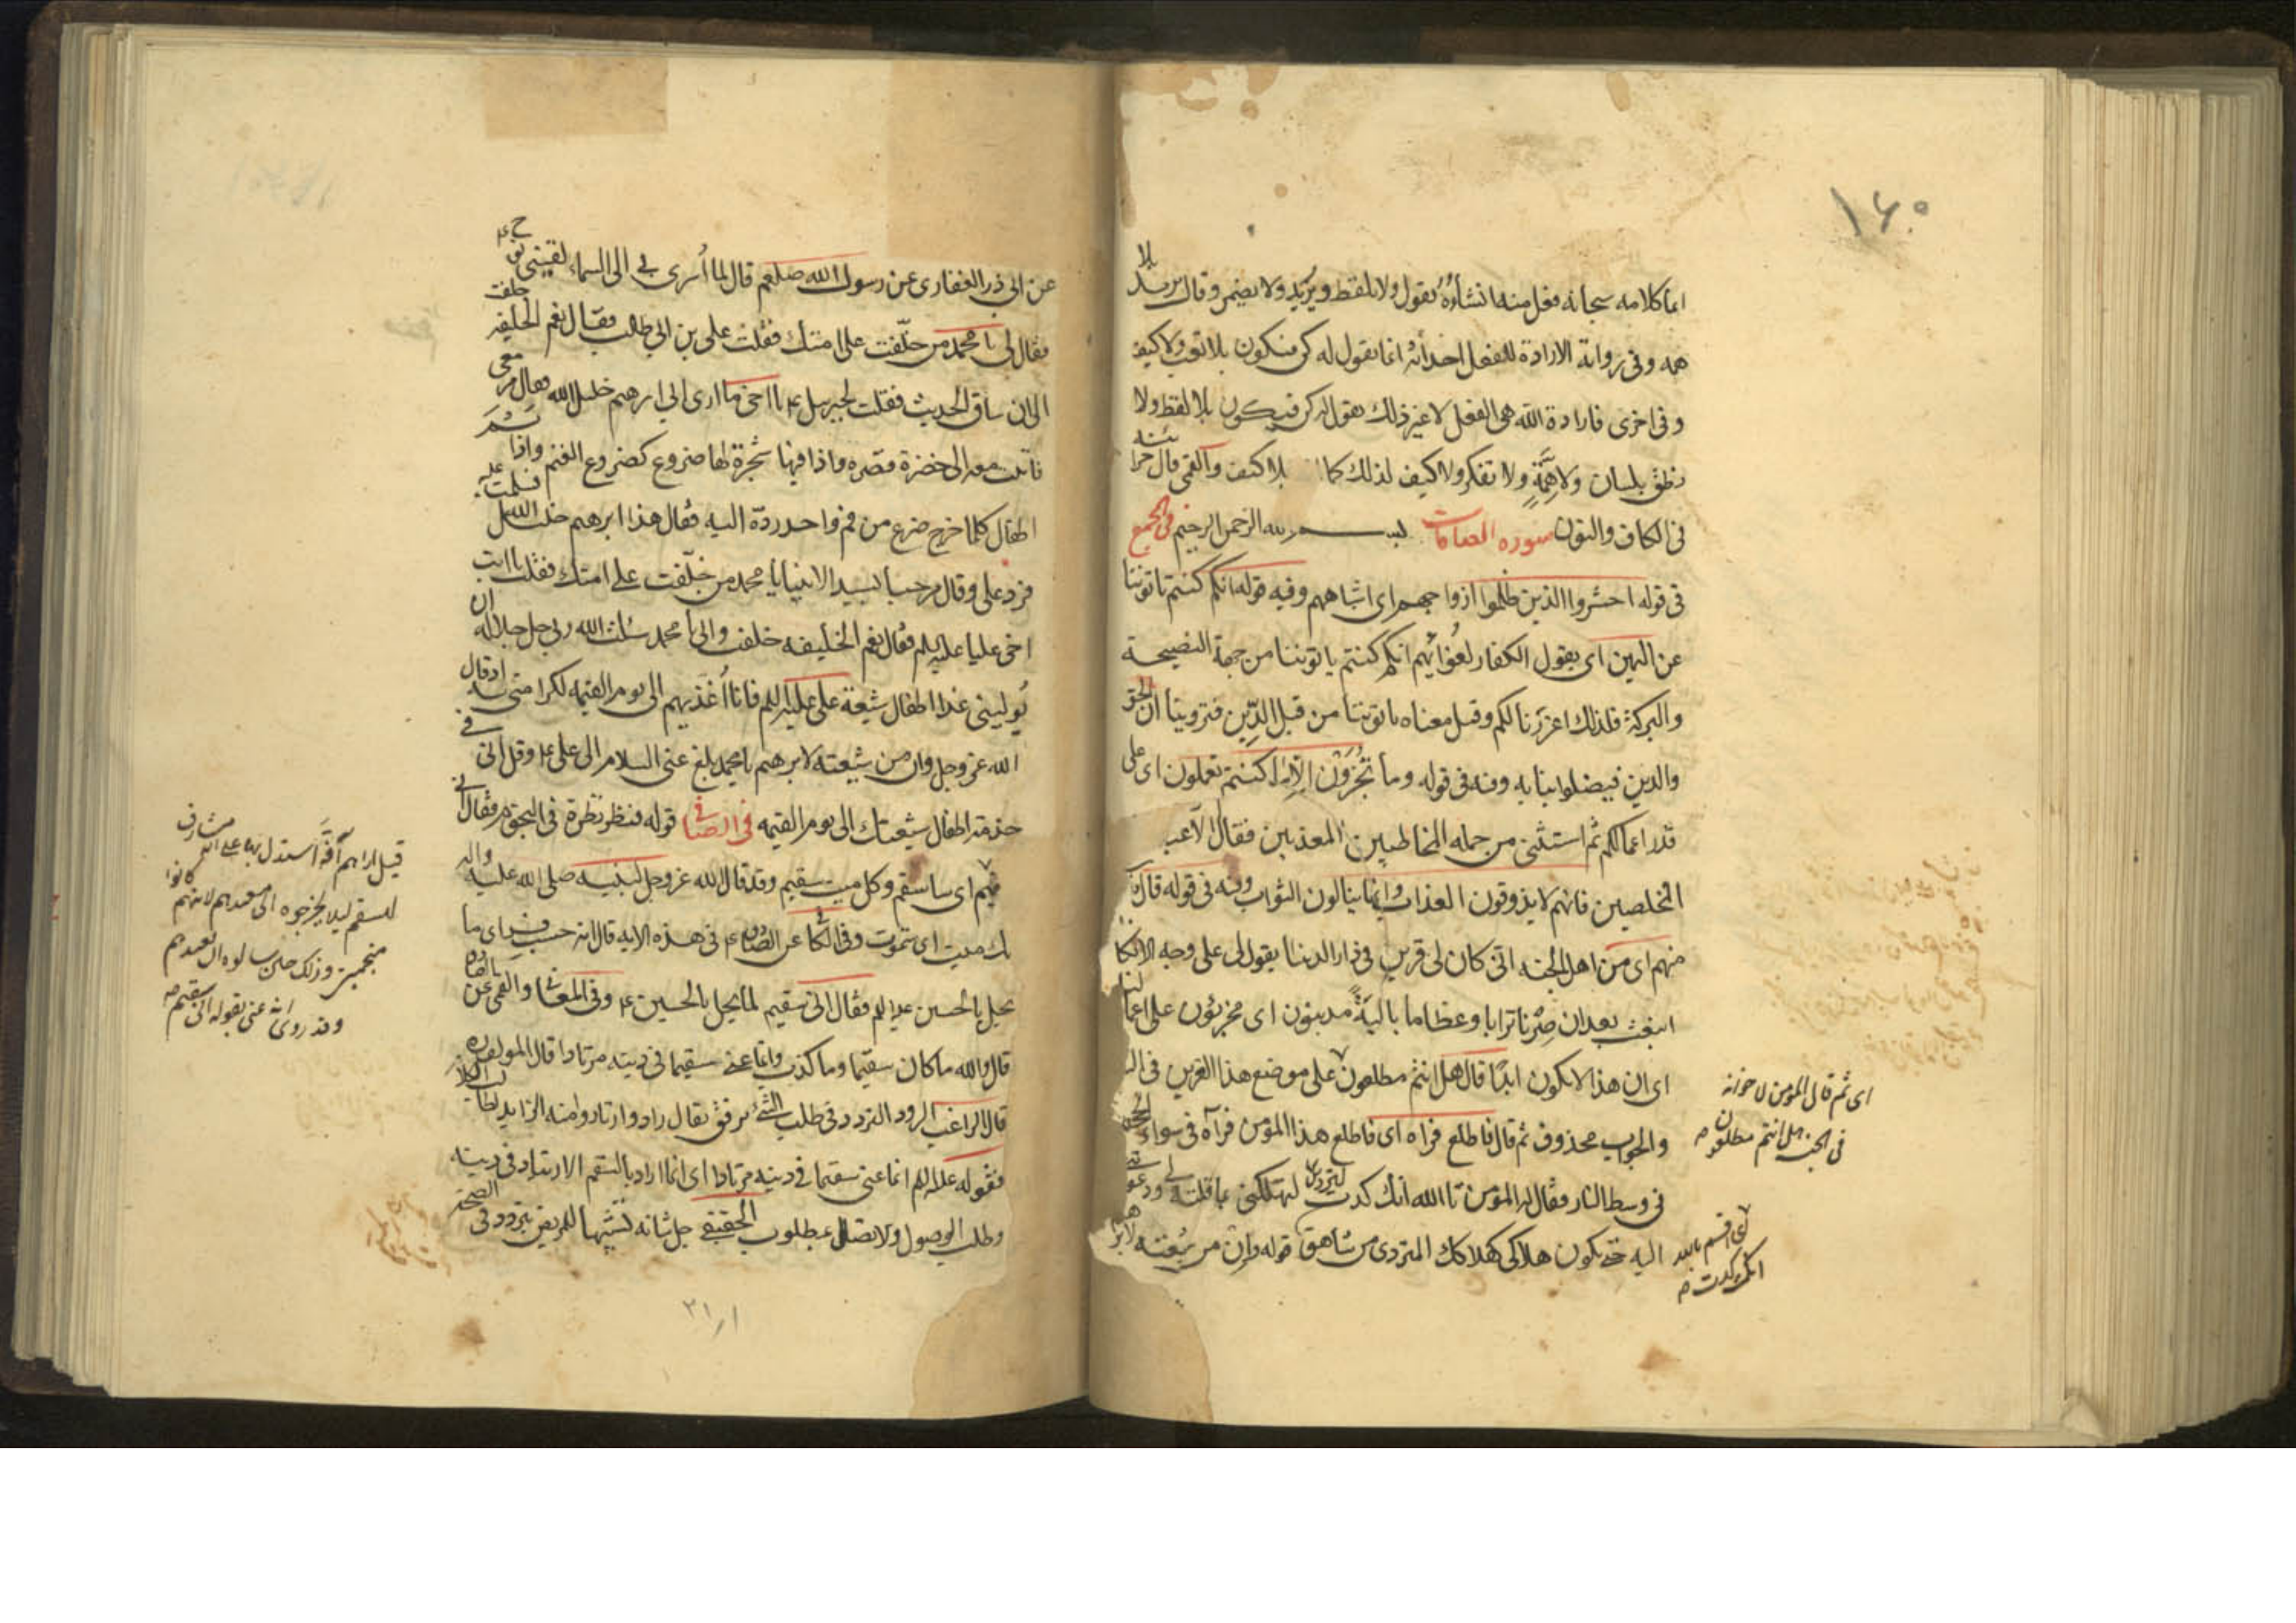 ١٦٠
انما كلامه سبحانه فعل منه انشأه يقول ولا يلفظ ويريد ولا يضمر وقال يريد بلا
همه وفى رواية الارادة للفعل احداثه انما يقول له كن فيكون بلا تعب ولا كيف
وفى اخرى فارادة الله هى الفعل لا غير ذلك يقول له كن فيكون بلا لفظ ولا
نطق بلسان ولا همّة ولا تفكر ولا كيف لذلك كما بلا كيف والقمى قال خزائنه
فى الكاف والنون سورة الصافات بسم الله الرحمن الرحيم فى المجمع
فى قوله احشروا الذين ظلموا ازواجهم اى اشباههم وفيه قوله انكم كنتم تاتوننا
عن اليمين اى يقول الكفار لغوائهم انكم كنتم تاتوننا من جهة النصيحة
والبركة فلذلك اغررنا لكم وقيل معناه تاتوننا من قبل الدّين فتروننا ان الحق
والدين فيضلوننا به وفيه فى قوله وما تجزون الا ما كنتم تعملون اى على
قدر اعمالكم ثم استثنى من جملة المخاطبين المعذبين فقال الا عباد
المخلصين فانهم لا يذوقون العذاب وانما ينالون الثواب وفيه فى قوله قال
منهم اى من اهل الجنه انى كان لى قرين فى دار الدنيا يقول لى على وجه الانكا
انبعث بعد ان صرنا ترابا وعظاما بالية لمدينون اى مجزيون على اعما
اى ان هذا لا يكون ابدًا قال هل انتم مطلعون على موضع هذا القرين فى
والجواب محذوف ثم قال فاطلع فراه اى فاطلع هذا المؤمن فرآه فى سواء الجحيم
فى وسط النار فقال له المؤمن تا الله انك كدت لتردين لتهلكنى بما قلته لى ودعوتنى
اليه حتى يكون هلاكى كهلاك المتردى من شاهق قوله وان من شيعته لابراهيم
اى ثم قال المؤمن لاخوانه
فى الجنه هل انتم مطلعون
اى اقسم بالله
انك كدت
عن ابى ذر الغفارى عن رسول الله صلعم قال لما أسرى بى الى السماء لقينى نوح ع
فقال لى يا محمد من خلّفت على امتك فقلت على بن ابى طالب فقال نعم الخليفه خلفت
الى ان ساق الحديث فقلت لجبرئيل ع يا اخى ما ارى ابى ابرهيم خليل الله فقال مر معى
فاتيت معه الى خضرة وقصره واذا فيها شجرة لها ضروع كضروع الغنم واذا ثَمَّ
اطفال كلما خرج ضرع من فم واحد ردّه اليه فقال هذا ابرهيم خليل الله فسلمت عليه
فرد على وقال مرحبا بسيد الانبيا يا محمد من خلّفت على امتك فقلت يا ابت
اخى عليا عليه السلام فقال نعم الخليفه خلفت وانى يا محمد سئلت الله ربى جل جلاله ان
يُولينى غذا اطفال شيعة على عليه السلام فانا أغذيهم الى يوم القيمه لكرامتى له اذ قال
الله عز وجل وان من شيعته لابرهيم يا محمد بلغ عنى السلام الى على ع وقل انى فى
خدمة اطفال شيعتك الى يوم القيمه فى الصافى قوله فنظر نظرة فى النجوم فقال انى
سقيم اى ساسقم وكل ميت سقيم وقد قال الله عز وجل لنبيه صلى الله عليه واله
انك ميت اى ستموت وفى الكافى عن الصادق ع فى هذه الايه قال انه حسب فراى ما
يحل بالحسين عليه السلام فقال انى سقيم لما يحل بالحسين ع وفى المعانى والقمى عن الصادق
قال والله ما كان سقيما وما كذب وانما عنى سقيما فى دينه مرتادا قال المؤلف ره
قال الراغب الرود التردد فى طلب الشئ برفق يقال راد وارتاد ومنه الرايد لطالب الكلا
فقوله عليه السلام انما عنى سقيما فى دينه مرتادا اى انما اراد بالسقم الارتياد فى دينه
وطلب الوصول والاتصال بمطلوبه الحقيقى جل شانه تشبيها للمريض يتردد فى الصحة
قيل اراهم انه استدل بها على انه مشارف
للسقم ليلا يخرجوه الى معيدهم لانهم كانوا
منجمين وذلك حين سالوه ان يعيد معهم
وقد روى انه عنى بقوله انى سقيم